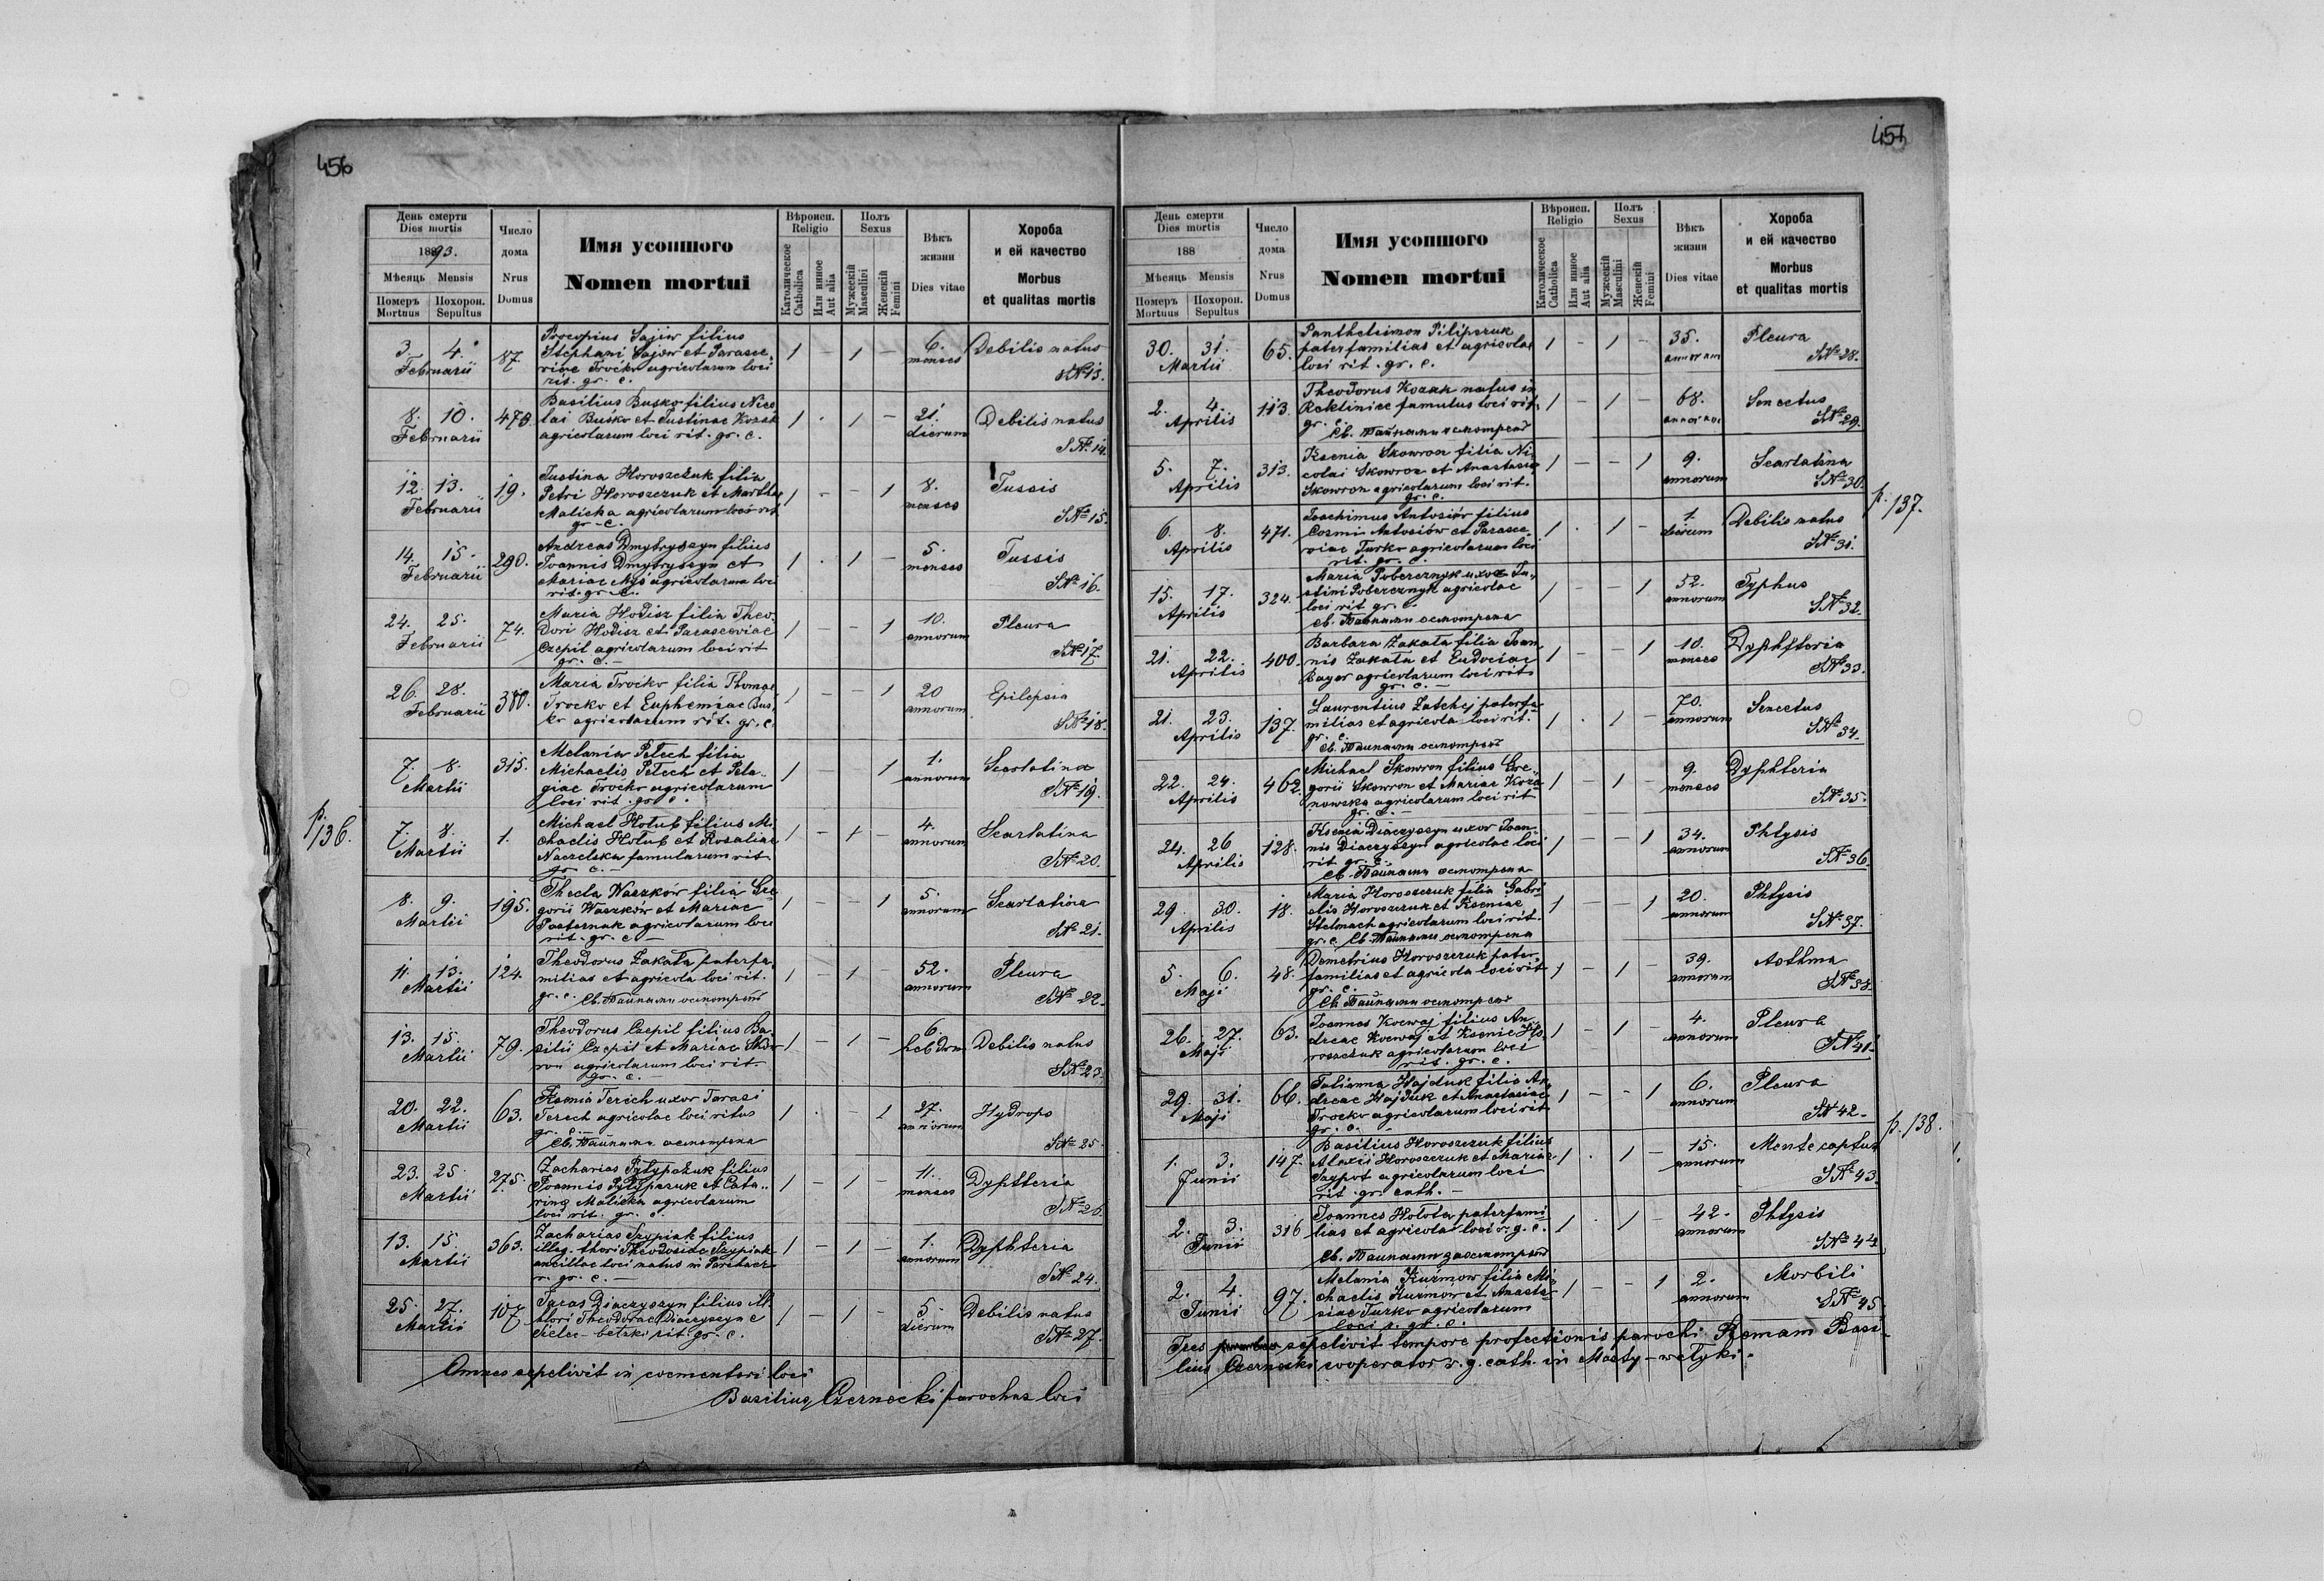 456
День смерти
Dies mortis
1893.
Мѣсяць Mensis
Померъ Mortuus
Похорон. Sepultus
Число дома
Nrus Domus
Имя усопшого
Nomen mortui
Вѣроисп.
Religio
Католическое Catholica
Или инное Aut alia
Полъ
Sexus
Мужескій Masculini
Женскій Femini
Вѣкъ жизни
Dies vitae
Хороба
и ей качество
Morbus
et qualitas mortis
3. 4. Februarii 87
Procopius Sajiw filius
Stephani Sajow et Parasce-
viae Trocko agricolarum loci
rit. gr. c.
1 - 1 - 6. menses Debilis natus
SNº 13.
8. 10. Februarii 478.
Basilius Busko filius Nico
lai Busko et Justinae Kozak
agricolarum loci rit. gr. c.
1 . 1 - 21. dierum Debilis natus
SNº 14.
12. 13. Februarii 19.
Justina Horoszczuk filia
Petri Horoszczuk et Marthae
Malicka agricolarum loci rit
gr. c.
1 - - 1 8. menses Tussis
SNº 15.
14. 15. Februarii 290.
Andreas Dmytryszyn filius
Joannis Dmytryszyn et
Mariae Myś agricolarum loci
rit. gr. c.
1 . 1 - 5. menses Tussis
SNº 16.
24. 25. Februarii 74.
Maria Hodisz filia Theo-
dori Hodisz et Parasceviae
Czepil agricolarum loci rit
gr. c. -
1 - - 1 10. annorum Pleura
SNº 17.
26. 28. Februarii 380.
Maria Trocko filia Thomae
Trocko et Euphemiae Bus-
ko agricolarum rit. gr. c.
1 - - 1 20 annorum Epilepsia
SNº 18.
7. 8. Martii 315.
Melania Petech filia
Michaelis Petech et Pela-
giae Trocko agricolarum
loci rit. gr. c.
1 - 1 1. annorum Scarlatina
SNº 19.
p. 136.
7. 8. Martii 1.
Michael Hołub filius Mi-
chaelis Hołub et Rosaliae
Naczelska famularum rit
gr. c. -
1 - 1 - 4. annorum Scarlatina
SNº 20.
8. 9. Martii 195.
Thecla Waszków filia Gre
gorii Waszków et Mariae
Pasternak agricolarum loci
rit. gr. c -
1 - - 1 5. annorum Scarlatina
SNº 21.
11. 13. Martii 124.
Theodorus Zakała paterfa-
milias et agricola loci rit.
gr. c. Св. Тайнами осмотренъ
1 - 1 52. annorum Pleura
SNº 22.
13. 15. Martii 79.
Theodorus Czepil filius Ba-
silii Czepil et Mariae Skow
ron agricolarum loci rit.
gr. c. -
1 - 1 - 6. hebdom Debilis natus
SNº 23.
20. 22. Martii 63.
Ksenia Terech uxor Tarasi
Terech agricolae loci ritus
gr. c. -
Св. Тайнами осмотрена
1 . - 1 27. annorum Hydrops
SNº 25.
23. 25. Martii 275.
Zacharias Pytypczuk filius
Joannis Pytypczuk et Cata-
rina Malicka agricolarum
loci rit. gr. c.
1 - 1 - 11. menses Dyphteria
SNº 26.
13. 15. Martii 363.
Zacharias Szypiak filius
illeg. thori Theodosiae Szypiak
ancillae loci natus in Parchacz
r. gr. c. -
1 - 1 - 1. annorum Dyphteria
SNº 24.
25. 27. Martii 107
Taras Diaczyszyn filius ill.
thori Theodorae Diaczyszyn e
Sielec-bełzki rit. gr. c.
1 - 1 - 5. dierum Debilis natus
SNº 27.
Omnes sepelivit in coementeri loci
Basilius Czernecki parochus loci
457
День смерти
Dies mortis
188
Мѣсяць Mensis
Померъ Mortuus
Похорон. Sepultus
Число дома
Nrus Domus
Имя усопшого
Nomen mortui
Вѣроисп.
Religio
Католическое Catholica
Или инное Aut alia
Полъ
Sexus
Мужескій Masculini
Женскій Femini
Вѣкъ жизни
Dies vitae
Хороба
и ей качество
Morbus
et qualitas mortis
30. 31. Martii 65.
Pantheleimon Pilipczuk
paterfamilias et agricolae
loci rit. gr. c.
1 - 1 - 35. annorum Pleura
SNº 28.
2. 4. Aprilis 113.
Theodorus Kozak natus in
Rekliniec famulus loci rit.
gr. c. Св. Тайнами осмотренъ
1 - 1 - 68. annorum Senectus
SNº 29.
5. 7. Aprilis 313.
Ksenia Skowron filia Ni-
colai Skowron et Anastasia
Skowron agricolarum loci rit.
gr. c.
1 - - 1 9. annorum Scarlatina
SNº 30.
p. 137.
6. 8. Aprilis 471.
Joachimus Antosiów filius
Cosmi Antosiów et Parasce-
viae Turko agricolarum loci
rit. gr. c.
1 . 1 - 1. dierum Debilis natus
SNº 31.
15. 17. Aprilis 324.
Maria Pobereznyk uxor Ju-
stini Pobercznyk agricolae
loci rit gr. c.
Св. Тайнами осмотрена
1 - - 1 52. annorum Typhus
SNº 32.
21. 22. Aprilis 400.
Barbara Zakała filia Joan
nis Zakała et Eudociae
Bager agricolarum loci rit.
gr. c. -
1 - - 1 10. menses Dyphfteria
SNº 33.
21. 23. Aprilis 137.
Laurentius Zatchej paterfa-
milias et agricola loci rit.
gr. c.
Св. Тайнами осмотренъ
1 . 1 - 70. annorum Senectus
SNº 34.
22. 24. Aprilis 462.
Michael Skowron filius Gre-
gorii Skowron et Mariae Koza
nowska agricolarum loci rit
gr. c. -
1 - 1 - 9. menses Dyphteria
SNº 35.
24. 26 Aprilis 128.
Ksenia Diaczyszyn uxor Joan-
nis Diaczyszyn agricolae loci
rit gr. c.
Св. Тайнами осмотрена
1 - - 1 34. annorum Phtysis
SNº 36.
29. 30. Aprilis 18.
Maria Horoszczuk filia Gabri
elis Horoszczuk et Kseniae
Stelmach agricolarum loci rit.
gr. c. Св. Тайнами осмотрена
1 - - 1 20. annorum Phtysis
SNº 37.
5. 6. Maji 48.
Demetrius Horoszczuk pater-
familias et agricola loci rit
gr. c.
Св. Тайнами осмотренъ
1 - 1 - 39. annorum Asthma
SNº 38.
26. 27. Maji 63.
Joannes Kocwaj filius An-
dreae Kocwaj et Ksenie Ho-
roszczuk agricolarum loci
rit. gr. c.
1 - 1 - 4. annorum Pleura
SNº 41.
29. 31. Maji 66.
Tatianna Hajduk filia An-
dreae Hajduk et Anastasiae
Trocko agricolarum loci rit
gr. c.
1 - - 1 6. annorum Pleura
SNº 42.
p. 138.
1. 3. Junii 147.
Basilius Horoszczuk filius
Alexii Horoszczuk et Mariae
Saypot agricolarum loci
rit gr. cath. -
1 . 1 - 15. annorum Mente captus
SNº 43.
2. 3. Junii 316
Joannes Hołota paterfami-
lias et agricola loci r. g. c.
Св. Тайнами заосмотренъ
1 . 1 - 42. annorum Phtysis
SNº 44.
2. 4. Junii 97.
Melania Kuzmow filia Mi-
chaelis Kuzmow et Anasta-
siae Turko agricolarum
loci r. gr. c.
1 - - 1 2. annorum Morbili
SNº 45.
Tres sepelivit tempore profectionis parochi Romam Basi-
lius Czernecki cooperator r. g. cath. in Mosty-wełyki.